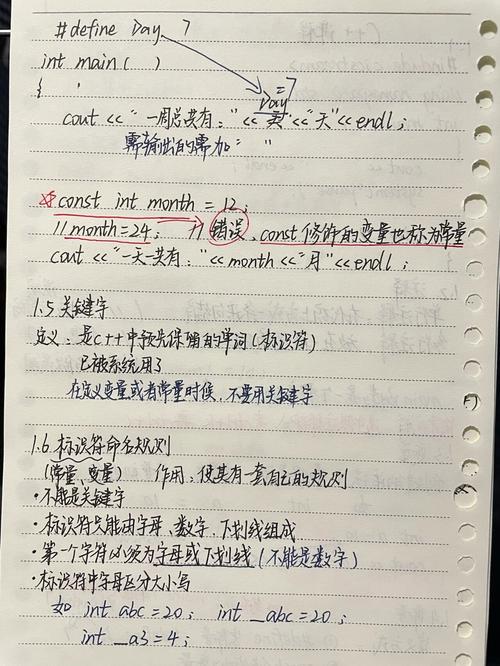 #define Day 7
int main( )
{
Day=7
cout <<"一周总共有："<<天<<"天"<<endl;
需输出的需加" "
※const int month = 12;
//month=24; // 错误，const修饰的变量也称为常量
cout <<"一天一共有："<<month<<"月"<<endl;
1.5 关键字
定义：是C++中预先保留的单词(标识符)
已被系统用了
在定义变量或者常量时候，不要用关键字
1.6 标识符命名规则
(常量、变量) 作用：使其有一套自己的规则
·不能是关键字
·标识符只能由字母、数字、下划线组成
·第一个字符必须为字母或下划线(不能是数字)
·标识符中字母区分大小写
如 int abc=20; int _abc=20;
int _a3=4;